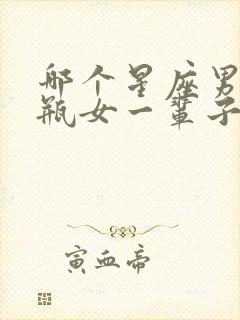 哪个星座男
瓶女一辈子
寅血帝